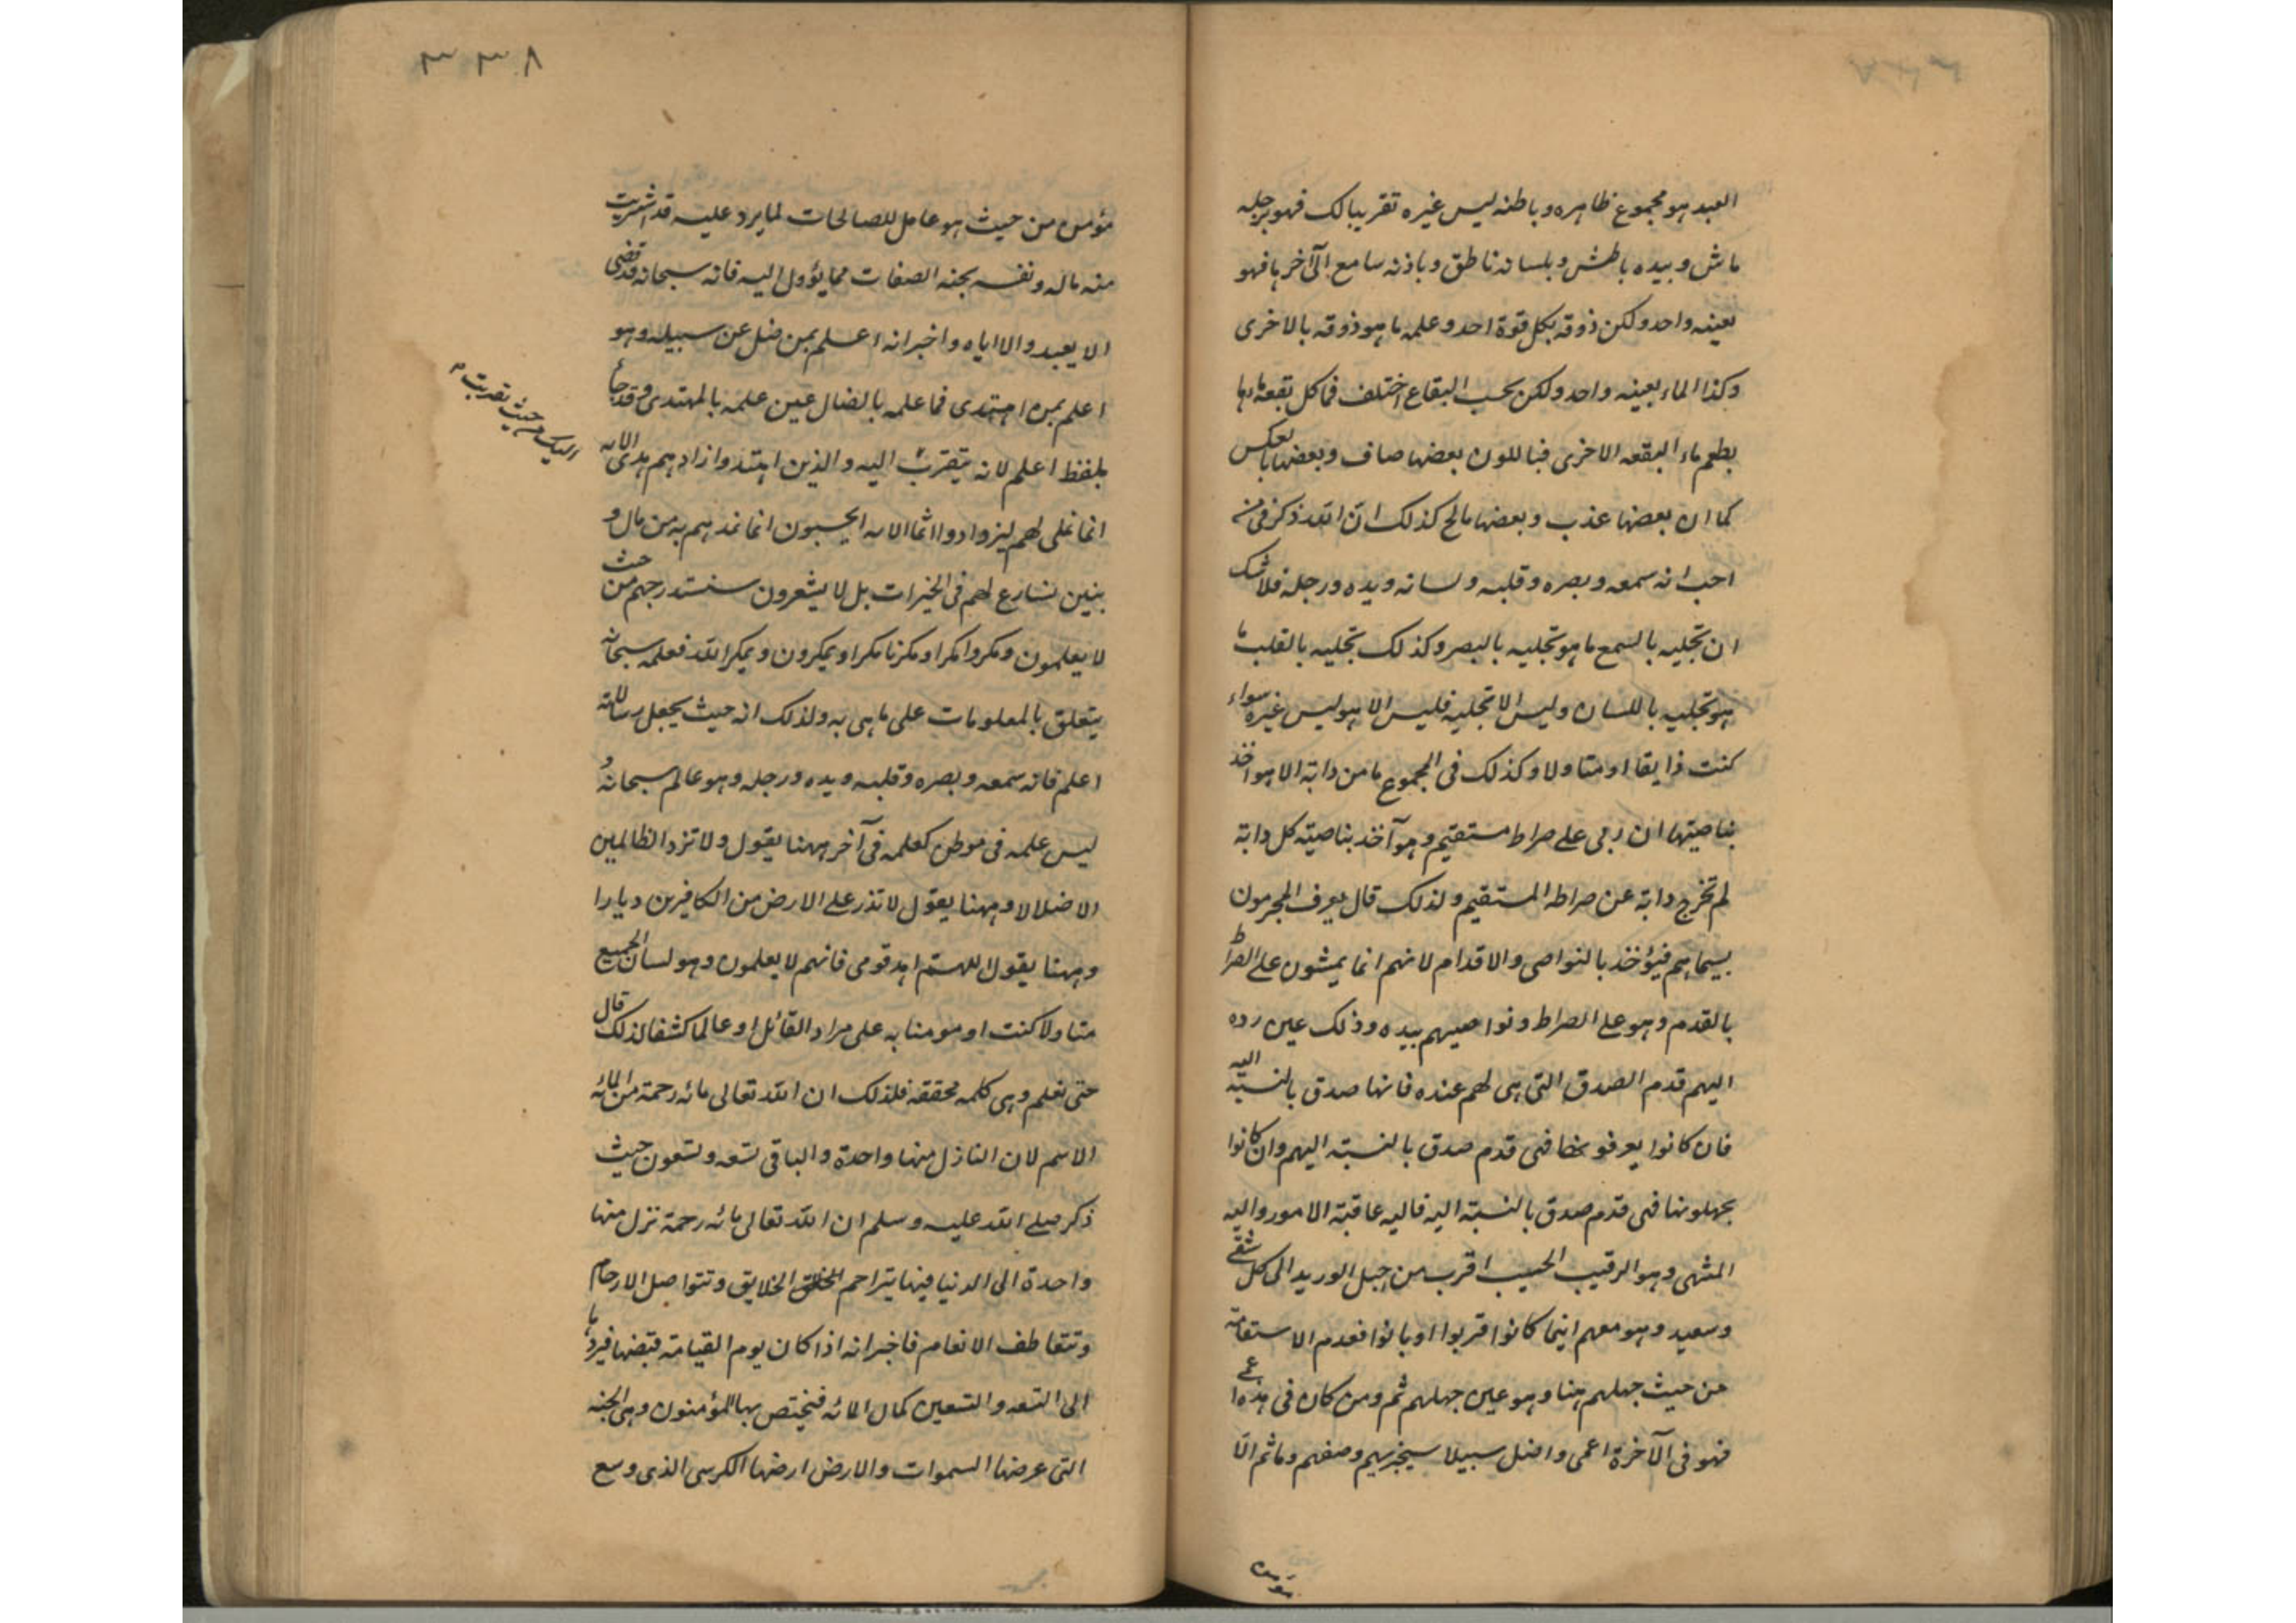 العبد هو مجموع ظاهره وباطنه ليس غيره تقريبا لك فهو برجله
ماش وبيده باطش وبلسانه ناطق وباذنه سامع الى آخرها فهو
بعينه واحد ولكن ذوقه بكل قوة احد وعلمه ما هو ذوقه بالاخرى
وكذا الماء بعينه واحد ولكن بحسب البقاع اختلف فما كل بقعة ماءها
بطعم ماء البقعه الاخرى فباللون بعضها صاف وبعضها بالعكس
كما ان بعضها عذب وبعضها مالح كذلك ان الله ذكر في من
احب انه سمعه وبصره وقلبه ولسانه ويده ورجله فلا شك
ان تجليه بالسمع ما هو تجليه بالبصر وكذلك تجليه بالقلب ما
هو تجليه باللسان وليس الا تجليه فليس الا هو ليس غيره سواء
كنت ذايقا او متاولا وكذلك في المجموع ما من دابة الا هو آخذ
بناصيتها ان ربى على صراط مستقيم وهو آخذ بناصية كل دابة
لم تخرج دابة عن صراطه المستقيم ولذلك قال يعرف المجرمون
بسيماهم فيؤخذ بالنواصى والاقدام لانهم انما يمشون على الصراط
بالقدم وهو على الصراط ونواصيهم بيده وذلك عين رده
اليهم قدم الصدق التى هى لهم عنده فانها صدق بالنسبة اليه
فان كانوا يعرفونها فهى قدم صدق بالنسبة اليهم وان كانوا
يجهلونها فهى قدم صدق بالنسبة اليه فاليه عاقبة الامور واليه
المنتهى وهو الرقيب الحسيب اقرب من حبل الوريد الى كل شقى
وسعيد وهو معهم اينما كانوا قربوا او بانوا فعدم الاستقامة
من حيث جهلهم هنا وهو عين جهلهم ثم ومن كان فى هذه اعمى
فهو فى الآخرة اعمى واضل سبيلا سيجزيهم وصفهم وما ثم الا
مؤمن
٣٣٨
مؤمن من حيث هو عامل للصالحات لما يرد عليه قد اشتريت
منه ماله ونفسه بجنه الصفات مما يؤول اليه فانه سبحانه قد قضى
الا يعبدوا الا اياه واخبر انه اعلم بمن ضل عن سبيله وهو
اعلم بمن اهتدى فما علمه بالضال عين علمه بالمهتدى وقد جاء
بلفظ اعلم لانه يتقرب اليه والذين اهتدوا زادهم هدى الايه
انما نملى لهم ليزدادوا اثما الايه ايحسبون انما نمدهم به من مال و
بنين نسارع لهم فى الخيرات بل لا يشعرون سنستدرجهم من حيث
لا يعلمون ومكروا مكرا ومكرنا مكرا ويمكرون ويمكر الله فعلمه سبحانه
يتعلق بالمعلومات على ما هى به ولذلك انه حيث يجعل رسالاته
اعلم فانه سمعه وبصره وقلبه ويده ورجله وهو عالم سبحانه و
ليس علمه فى موطن كعلمه فى آخر ههنا يقول ولا تزد الظالمين
الا ضلالا وههنا يقول لا تذر على الارض من الكافرين ديارا
وههنا يقول اللهم اهد قومى فانهم لا يعلمون وهو لسان الجميع
متاولا كنت او مومنا به على مراد القائل او عالما كشفا لذلك قال
حتى نعلم وهى كلمه محققه فلذلك ان الله تعالى مائه رحمة من المائه
الاسم لان النازل منها واحدة والباقى تسعه وتسعون حيث
ذكر صلى الله عليه وسلم ان الله تعالى مائه رحمة نزل منها
واحدة الى الدنيا فيها يتراحم الخلق الخلايق وتتواصل الارحام
وتتعاطف الانعام فاخبر انه اذا كان يوم القيامة قبضها فيردها
الى التسعه والتسعين كمال المائه فيختص بها المؤمنون وهى الجنه
التى عرضها السموات والارض ارضها الكرسى الذى وسع
اليك من حيث تقربت